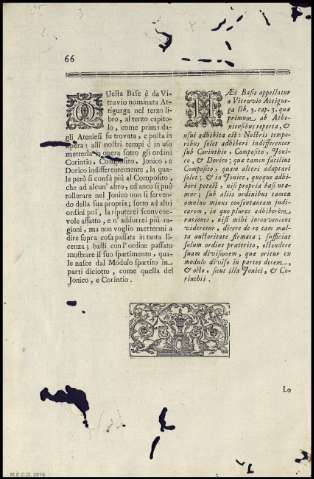 66
QUesta Base è da Vi-
truvio nominata At-
tigurga nel terzo li-
bro, al terzo capito-
lo, come primi da-
gli Ateniesi fu trovata, e posta in
opera; alli nostri tempi si usa
metterla in opera sotto gli ordini
Corintio, Composito, Jonico, e
Dorico indifferentemente, la qua-
le però si confà più al Composito,
che ad alcun' altro, ed ancora si può
tollerare nel Jonico non si serven-
do della sua propria; sotto ad altri
ordini poi, la riputerei sconvene-
vole affatto, e n' addurrei più ra-
gioni, ma non voglio mettermi a
dire sopra cosa passata in tanta li-
cenza; basti con l'ordine passato
mostrare il suo spartimento, qua-
le nasce dal Modulo spartito in
parti diciotto, come quella del
Jonico, e Corintio.
HÆc Basis appellatur
a Vitruvio Atticur-
ga lib. 3. cap. 3. qua
primum ab Athe-
niensibus reperta, &
usui adhibita est: Nostris tempo-
ribus solet adhiberi indifferenter
sub Corinthio, Composito, Joni-
co, & Dorico; qua tamen facilius
Composito, quam alteri adaptari
solet, & in Jonico, quoque adhi-
beri potest, nisi propria basi uta-
mur; sub aliis ordinibus tamen
omnino minus consentaneam judi-
carem, in quo plures adhiberem
rationes, nisi mihi intervenirem
viderem, dicere de re tam mul-
ta auctoritate firmata; sufficiat
solum ordine praeterito, ostendere
suam divisionem, quae oritur ex
modulo diviso in partes decem,
& octo, sicut illa Jonici, & Co-
rinthii.
Lo